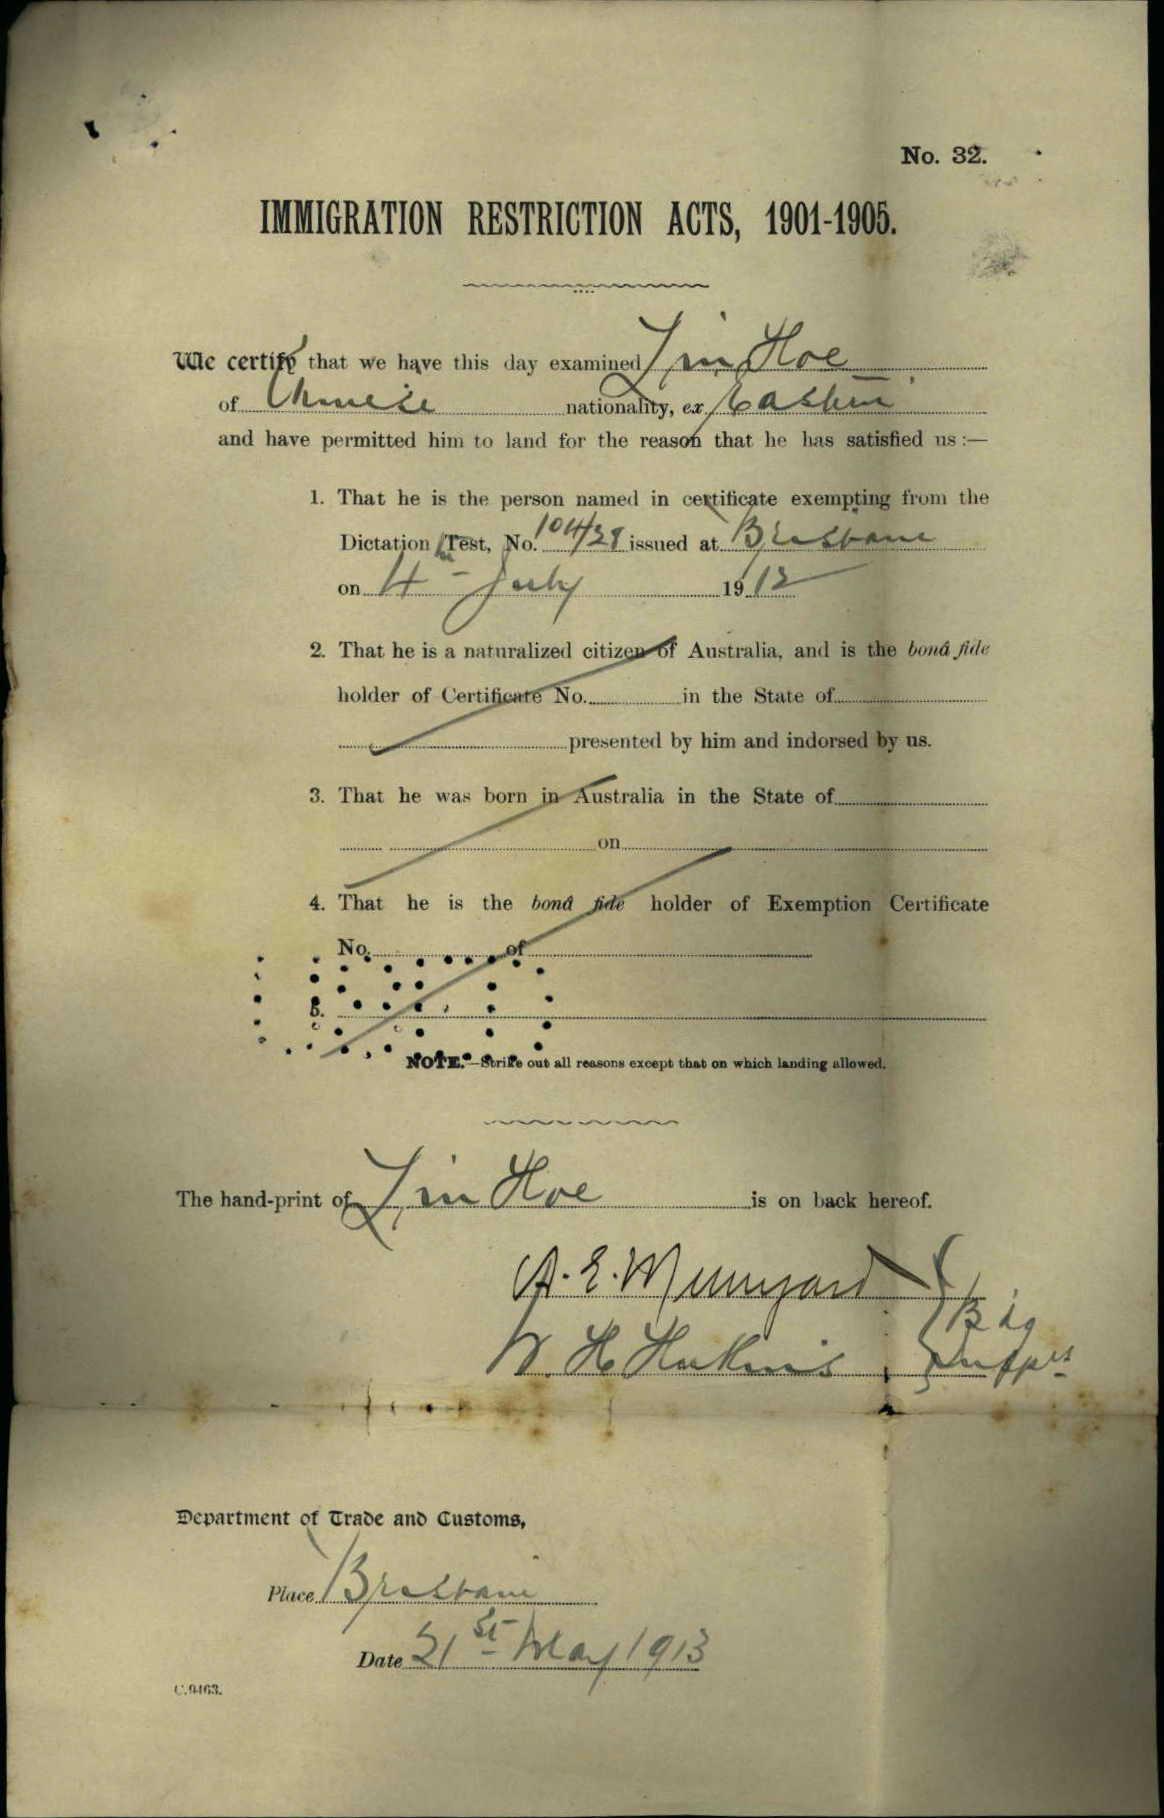 No. 32.
IMMIGRATION RESTRICTION ACTS, 1901-1905.
We certify that we have this day examined Lin Hoe
of Chinese nationality, ex Eastern
and have permitted him to land for the reason that he has satisfied us :—
1. That he is the person named in certificate exempting from the
Dictation Test, No. 104/28 issued at Brisbane
on 4th July 1912
2. That he is a naturalized citizen of Australia, and is the bonâ fide
holder of Certificate No. in the State of
presented by him and indorsed by us.
3. That he was born in Australia in the State of
on
4. That he is the bonâ fide holder of Exemption Certificate
No. of
5.
NOTE.—Strike out all reasons except that on which landing allowed.
The hand-print of Lin Hoe is on back hereof.
A. E. Munyard
W. H.
Department of Trade and Customs,
Place Brisbane
Date 21st May 1913
C.9463.